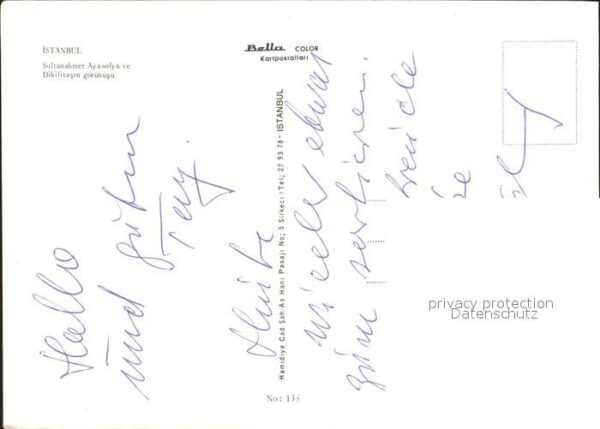 İSTANBUL
Sultanahmet Ayasofya ve
Dikilitaşın görünüşü
Bella COLOR
Kartpostalları
Hamidiye Cad.Şah.As Hanı Pasajı No; 5 Sirkeci : Tel; 27 93 78 - İSTANBUL
No: 135
Hallo
und guten
Tag.
Heute
wieder etwas
zum sortieren.
privacy protection
Datenschutz